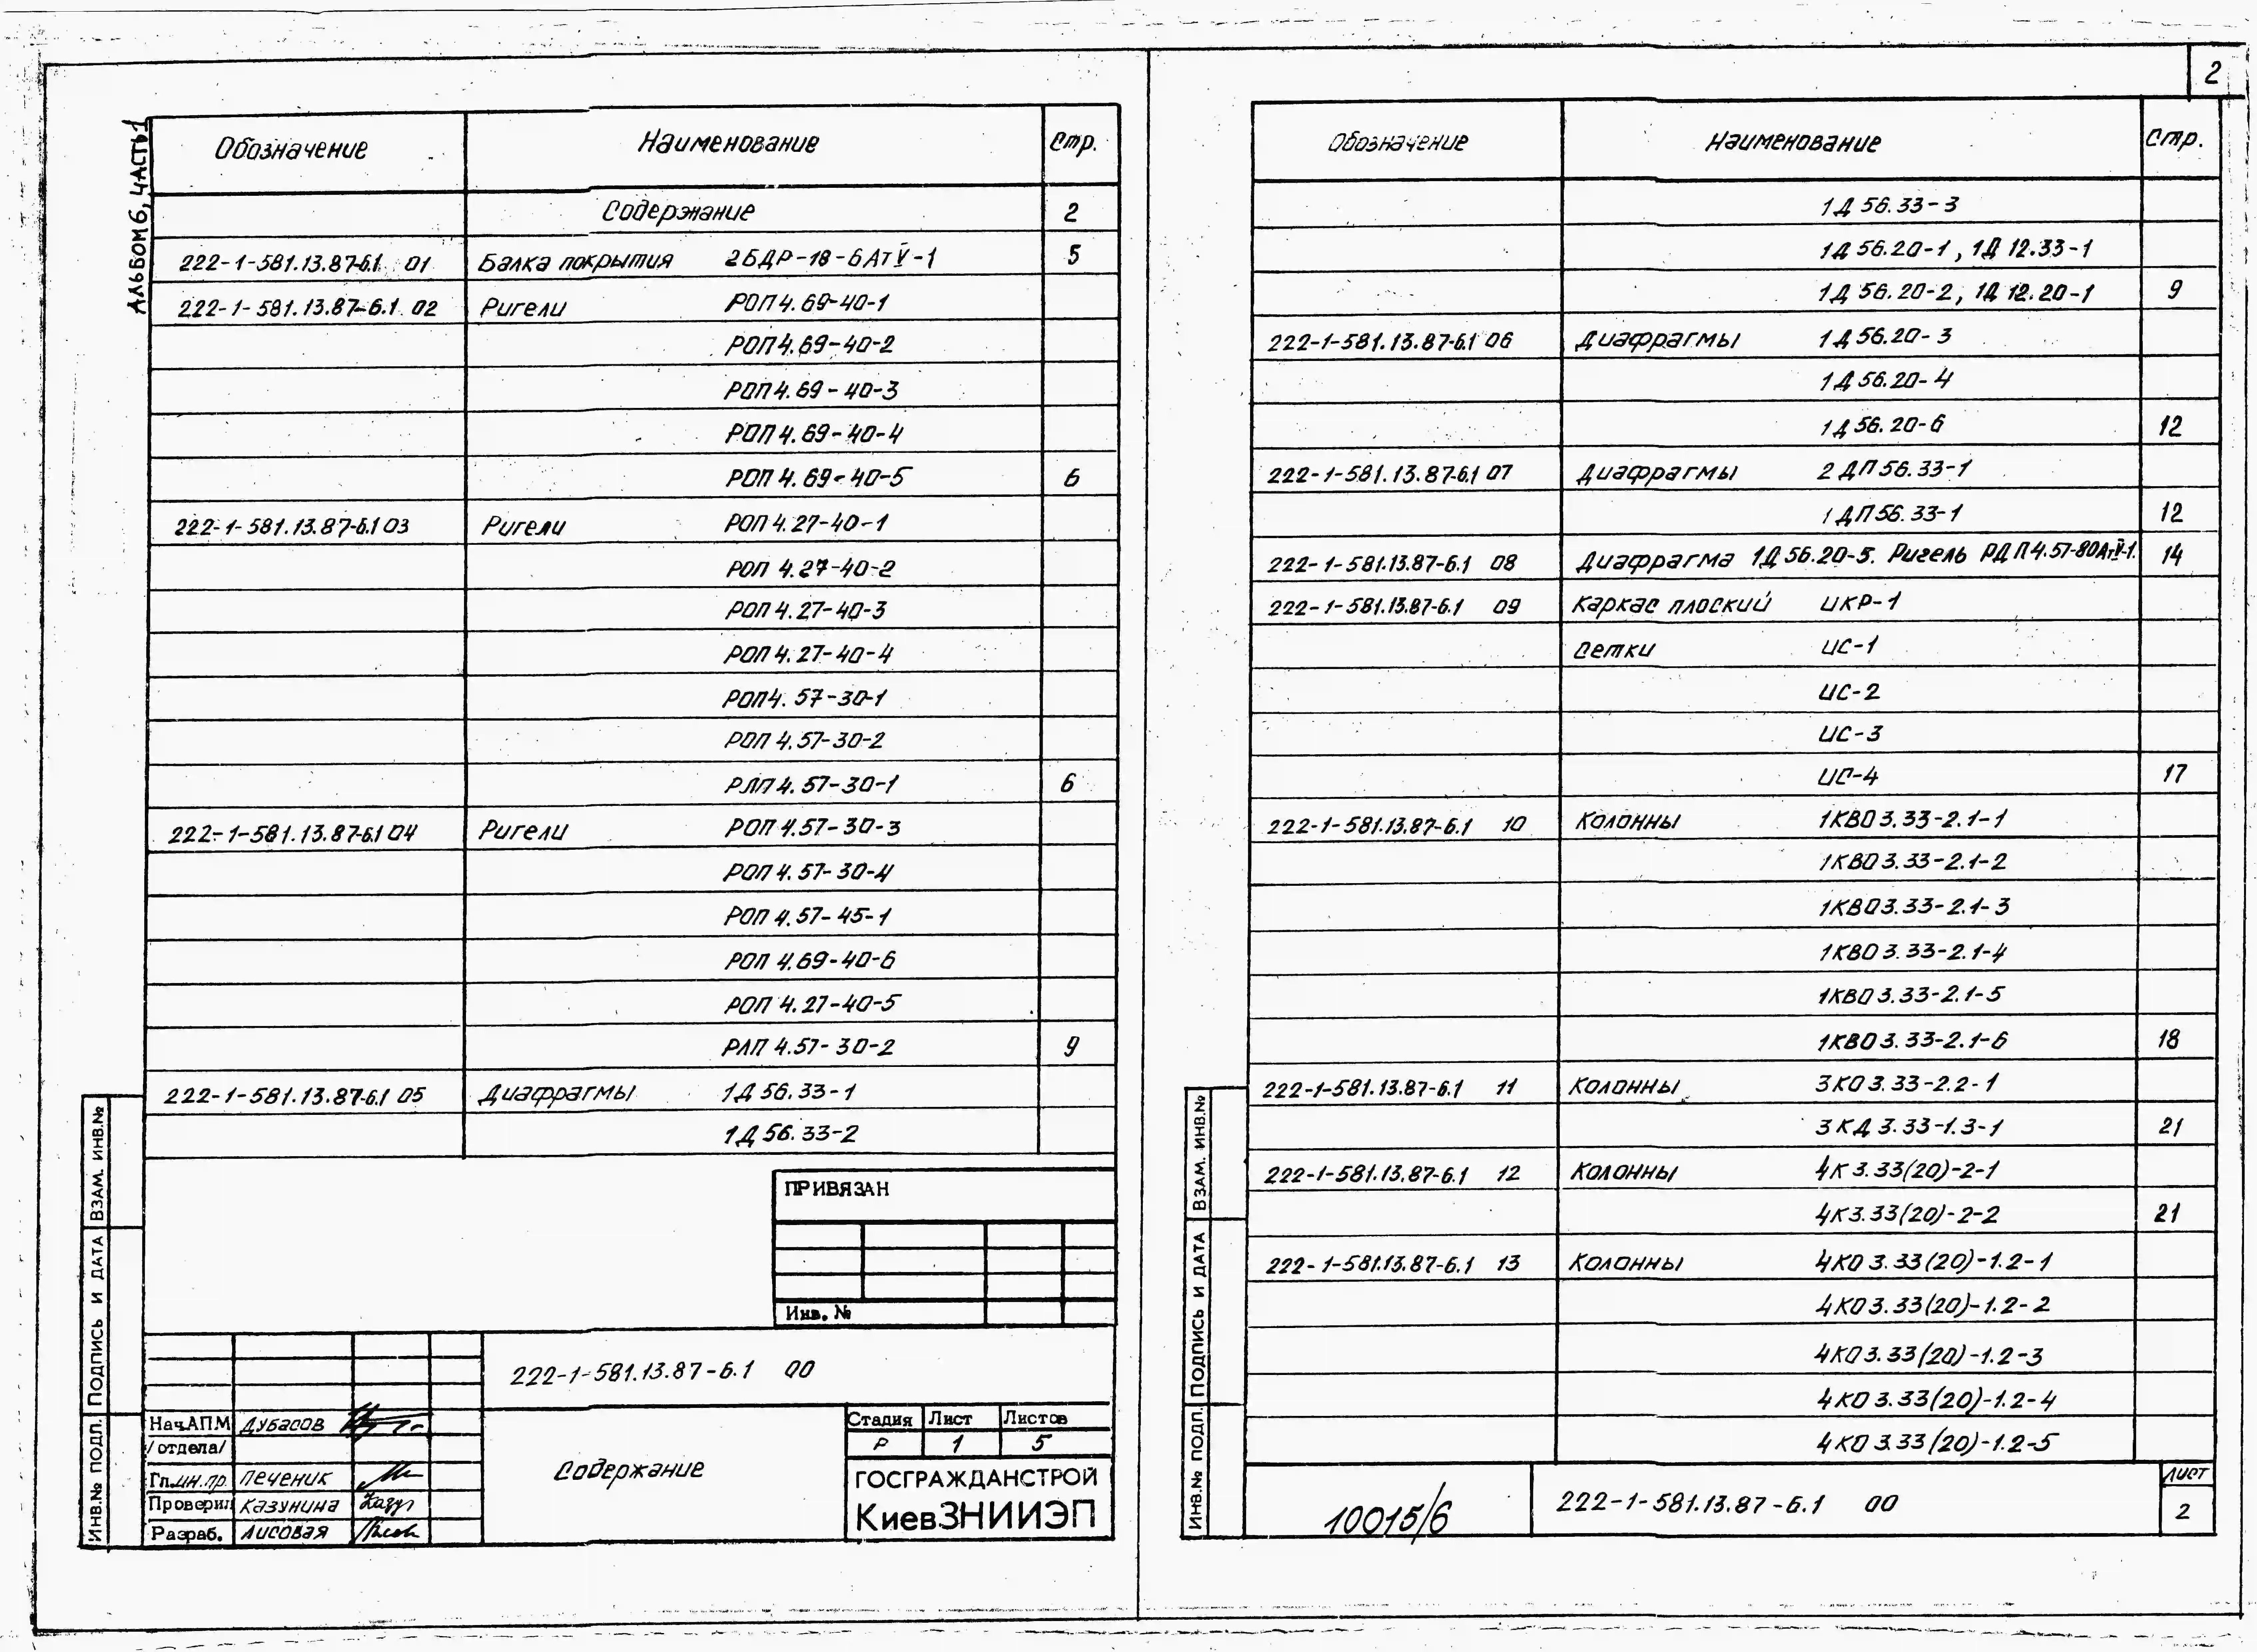 2
АЛЬБОМ 6, ЧАСТЬ 1
Обозначение Наименование Стр.
Содержание 2
222-1-581.13.87-6.1 01 Балка покрытия 2БДР-18-6АтV-1 5
222-1-581.13.87-6.1 02 Ригели РОП4.69-40-1
РОП4.69-40-2
РОП4.69-40-3
РОП4.69-40-4
РОП4.69-40-5 6
222-1-581.13.87-6.1 03 Ригели РОП4.27-40-1
РОП4.27-40-2
РОП4.27-40-3
РОП4.27-40-4
РОП4.57-30-1
РОП4.57-30-2
РЛП4.57-30-1 6
222-1-581.13.87-6.1 04 Ригели РОП4.57-30-3
РОП4.57-30-4
РОП4.57-45-1
РОП4.69-40-6
РОП4.27-40-5
РЛП4.57-30-2 9
222-1-581.13.87-6.1 05 Диафрагмы 1Д56.33-1
1Д56.33-2
ПРИВЯЗАН
Инв. №
222-1-581.13.87-6.1 00
Нач.АПМ Дубасов
/отдела/
Гл.ин.пр. Печеник
Проверил Казунина
Разраб. Лисовая
Содержание
Стадия Лист Листов
Р 1 5
ГОСГРАЖДАНСТРОЙ
КиевЗНИИЭП
ИНВ.№ ПОДЛ. ПОДПИСЬ И ДАТА ВЗАМ. ИНВ.№
Обозначение Наименование Стр.
1Д56.33-3
1Д56.20-1, 1Д12.33-1
1Д56.20-2, 1Д12.20-1 9
222-1-581.13.87-6.1 06 Диафрагмы 1Д56.20-3
1Д56.20-4
1Д56.20-6 12
222-1-581.13.87-6.1 07 Диафрагмы 2ДП56.33-1
1ДП56.33-1 12
222-1-581.13.87-6.1 08 Диафрагма 1Д56.20-5. Ригель РДП4.57-80АтV-1. 14
222-1-581.13.87-6.1 09 Каркас плоский ИКР-1
Сетки ИС-1
ИС-2
ИС-3
ИС-4 17
222-1-581.13.87-6.1 10 Колонны 1КВО3.33-2.1-1
1КВО3.33-2.1-2
1КВО3.33-2.1-3
1КВО3.33-2.1-4
1КВО3.33-2.1-5
1КВО3.33-2.1-6 18
222-1-581.13.87-6.1 11 Колонны 3КО3.33-2.2-1
3КД3.33-1.3-1 21
222-1-581.13.87-6.1 12 Колонны 4К3.33(20)-2-1
4К3.33(20)-2-2 21
222-1-581.13.87-6.1 13 Колонны 4КО3.33(20)-1.2-1
4КО3.33(20)-1.2-2
4КО3.33(20)-1.2-3
4КО3.33(20)-1.2-4
4КО3.33(20)-1.2-5
10015/6
222-1-581.13.87-6.1 00
Лист
2
ИНВ.№ ПОДЛ. ПОДПИСЬ И ДАТА ВЗАМ. ИНВ.№